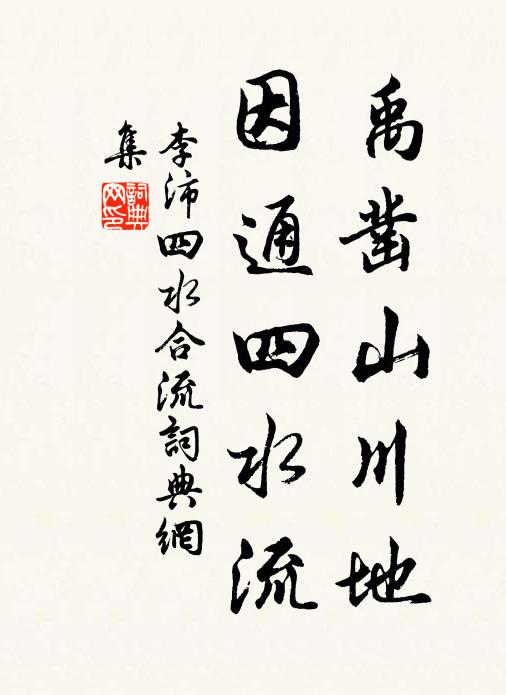 禹鑿山川地
因通四水流
李沛四水合流詞典網
集
詞典網印